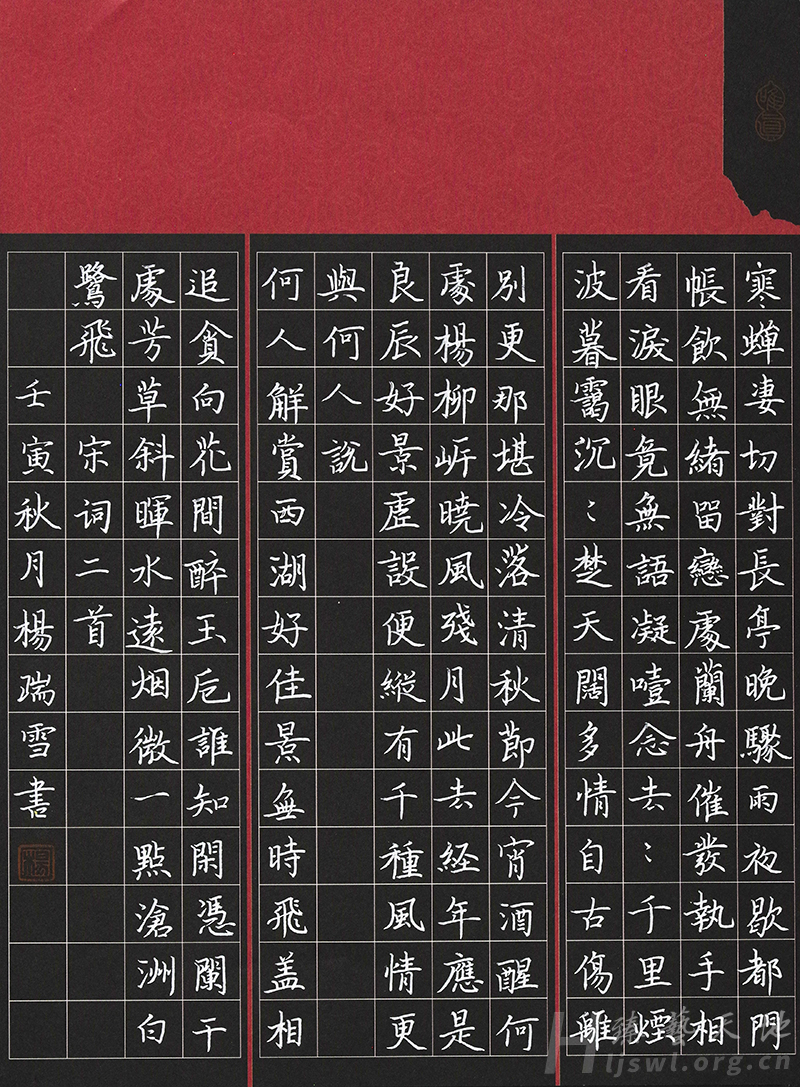 寒蟬凄切對長亭晚驟雨夜歇都門
帳飲無緒留戀處蘭舟催發執手相
看淚眼竟無語凝噎念去〻千里煙
波暮靄沉〻楚天闊多情自古傷離
別更那堪冷落清秋節今宵酒醒何
處楊柳岸曉風殘月此去経年應是
良辰好景虛設便縱有千種風情更
與何人說
何人解賞西湖好佳景無時飛盖相
追貪向花間醉玉卮誰知閑憑闌干
處芳草斜暉水遠烟微一點滄洲白
鷺飛 宋詞二首
壬寅秋月楊踹雪書
楊
藝天地
Hljswl.org.cn